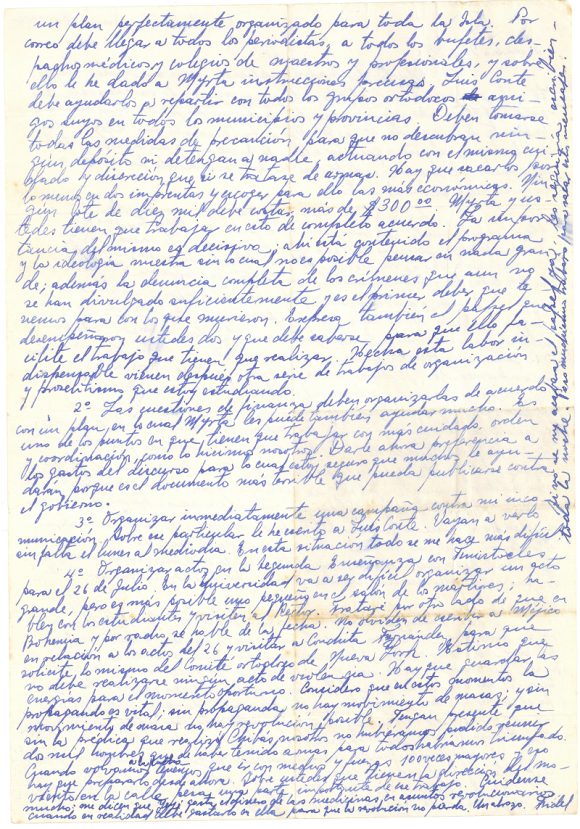 un plan perfectamente organizado para toda la Isla. Por
correo debe llegar a todos los periodistas, a todos los bufetes, des-
pachos médicos y colegios de maestros y profesionales, y sobre
ello le he dado a Myrta instrucciones precisas. Luis Conte
debe ayudarlos a repartir con todos los grupos ortodoxos ami-
gos suyos en todos los municipios y provincias. Deben tomarse
todas las medidas de precaución para que no descubran nin-
gún depósito ni detengan a nadie, actuando con el mismo cui-
dado y discreción que si se tratase de armas. Hay que sacarlos por
lo menos en dos imprentas y escoger para ello las más económicas. Nin-
gún lote de diez mil debe costar más de $300.00. Myrta y us-
tedes tienen que trabajar en esto de completo acuerdo. La impor-
tancia del mismo es decisiva; ahí está contenido el programa
y la ideología nuestra sin lo cual no es posible pensar en nada gran-
de; además la denuncia completa de los crímenes que aun no
se han divulgado suficientemente y es el primer deber que te-
nemos para con los que murieron. Expresa también el papel que
desempeñaron ustedes dos y que debe saberse, para que ello fa-
cilite el trabajo que tienen que realizar. Hecha esta labor in-
dispensable vienen después otra serie de trabajos de organización
y proselitismo que estoy estudiando.
2º Las cuestiones de finanza deben organizarlas de acuerdo
con un plan, en lo cual Myrta les puede también ayudar mucho. Es
uno de los puntos en que tienen que trabajar con más cuidado, orden
y coordinación, como lo hicimos nosotros. Darle ahora preferencia a
los gastos del discurso para lo cual estoy seguro que muchos le ayu-
darán, porque es el documento más terrible que pueda publicarse contra
el gobierno.
3º Organizar inmediatamente una campaña contra mi inco-
municación. Sobre ese particular le he escrito a Luis Conte. Vayan a verlo
sin falta el lunes al mediodía. En esta situación todo se me hace más difícil.
4º Organizar actos en la Segunda Enseñanza con
para el 26 de Julio. En la universidad va a ser difícil organizar un acto
grande, pero es más posible uno pequeño en el salón de los mártires; ha-
blen con los estudiantes y visiten al Rector. Trataré por otro lado de que en
Bohemia y por radio, se hable de la fecha. No olviden de escribir a Méjico
en relación a los actos del 26 y visitar a Conchita Fernández para que
solicite lo mismo del Comité ortodoxo de Nueva York. Estimo que
no debe realizarse ningún acto de violencia. Hay que guardar las
energías para el momento oportuno. Considero que en estos momentos la
propaganda es vital; sin propaganda no hay movimiento de masas; y sin
movimiento de masas no hay revolución posible. Tengan presente que
sin la prédica que realizó Chibás nosotros no hubiéramos podido reunir
dos mil hombres que de haber tenido armas para todos habríamos triunfado.
Cuando volvamos a la lucha tenemos que ir con medios y fuerzas 100 veces mayores y eso
hay que prepararlo desde ahora. Sobre ustedes que tienen la dirección del mo-
vimiento en la calle pesa una parte importante de ese trabajo. Cuídense
mucho; me dicen que gasta el dinero de las medicinas en asuntos revolucionarios
cuando en realidad debe gastarlo en ella para que la revolución no pierda. Un abrazo. Fidel